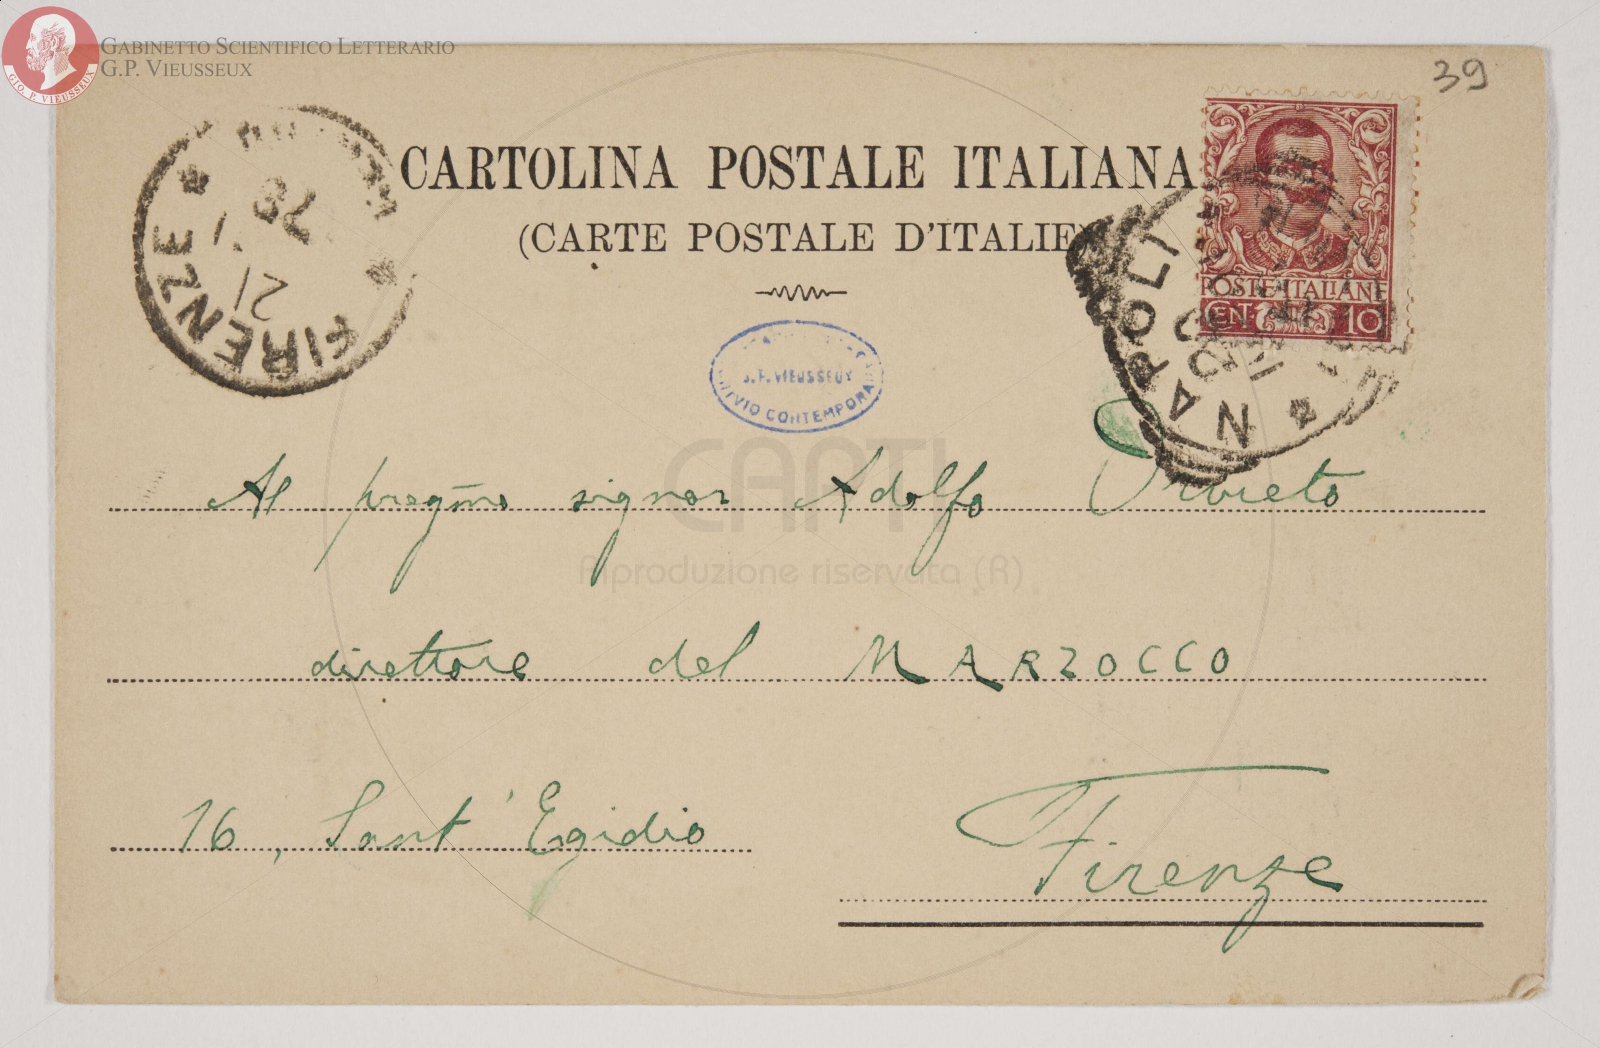 GABINETTO SCIENTIFICO LETTERARIO
G.P. VIEUSSEUX
GIO. P. VIEUSSEUX
39
CARTOLINA POSTALE ITALIANA
(CARTE POSTALE D'ITALIE)
FIRENZE
21
POSTE ITALIANE
CENT. 10
NAPOLI
VIEUSSEUX
CONTEMPORA
CARTI
Riproduzione riservata (R)
Al pregmo signor Adolfo Orvieto
direttore del MARZOCCO
16, Sant'Egidio
Firenze